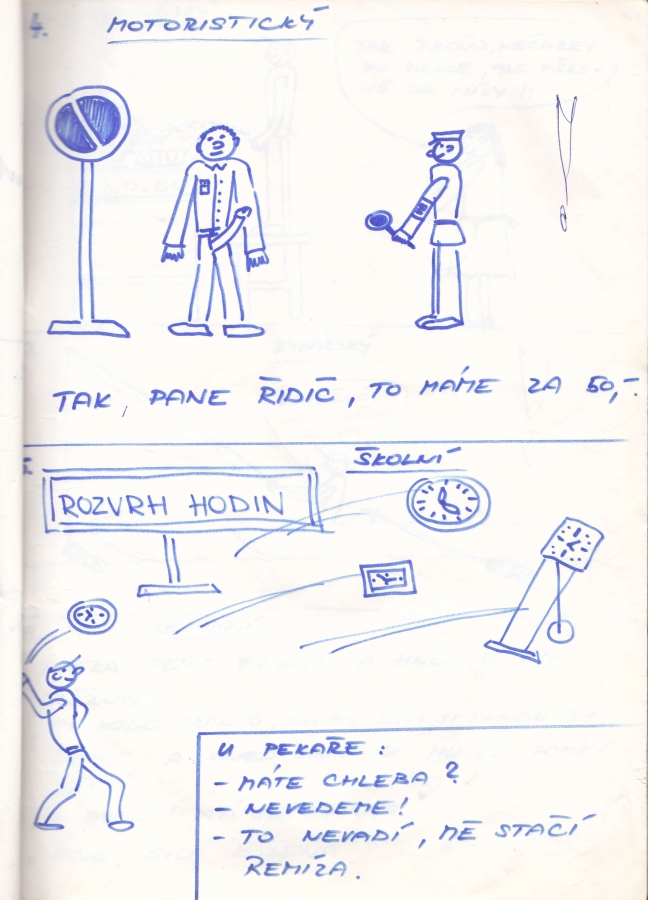 4.
MOTORISTICKÝ
TAK, PANE ŘIDIČ, TO MÁME ZA 50,-.
ŠKOLNÍ
ROZVRH HODIN
U PEKAŘE:
- MÁTE CHLEBA?
- NEVEDEME!
- TO NEVADÍ, MĚ STAČÍ
REMÍZA.